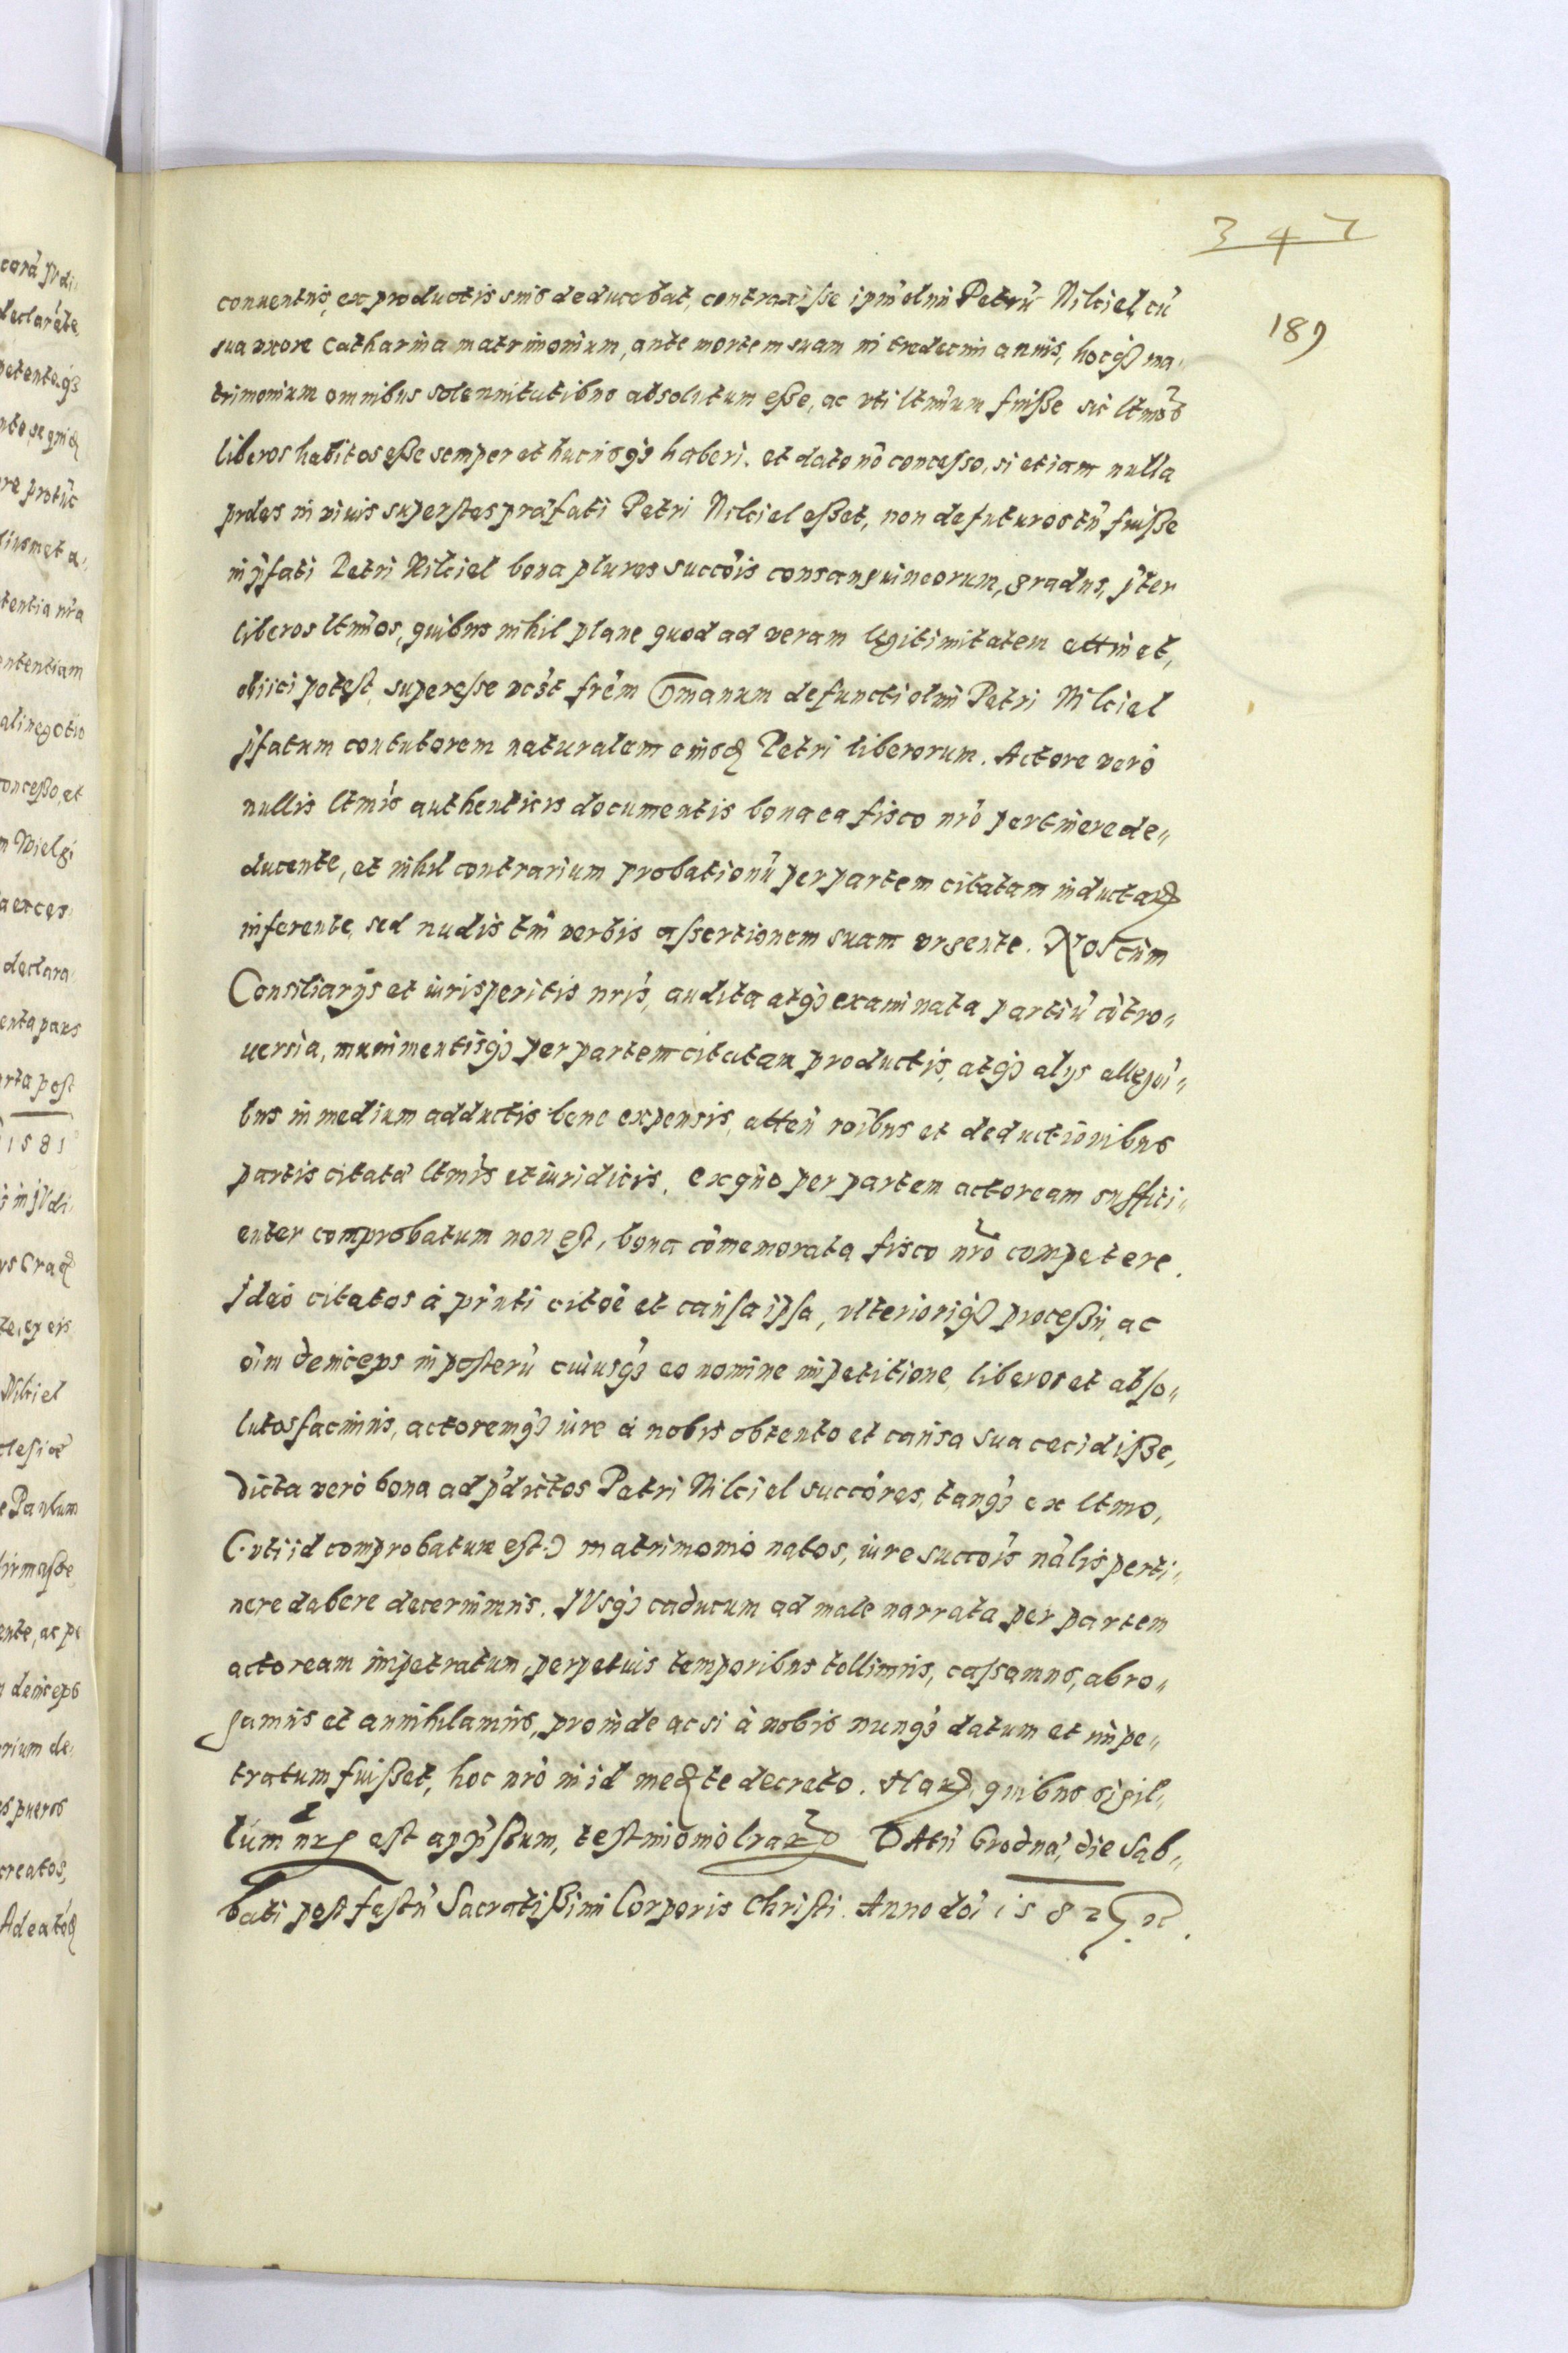 347
189
conuentus, ex productis suis deducebat, contraxisse ipm̃ olim Petrũ Nilciel, cũ
sua uxore Catharina matrimonium, ante mortem suam in tredecim annis, hocq́ꝫ ma-
trimonium omnibus solennitatibus absolutum eße, ac vti ltm̃um fuiße sic ltm̃os
liberos habitos eße semper et hucusq́ꝫ haberi. et dato nõ concesso, si etiam nulla
proles in viuis superstes præfati Petri Nilciel eßet, non defuturos tñ fuiße
in p̃fati Petri Nilciel bona plures succõis consanguineorum, gradus, p̃ter
liberos ltm̃os, quibus nihil plane quod ad veram legitimitatem attinet,
obiici potest, superesse frẽm germanum defuncti olim Petri Nilciel
p̃fatum contutorem naturalem eiusdẽ Petri liberorum. Actore verò
nullis ltm̃is authenticis documentis bona ea fisco nrõ pertinere de„
ducente, et nihil contrarium probationũ per partem citatam inductarꝫ
inferente, sed nudis tm̃ verbis assertionem suam vrgente. Nos cum
Consiliarijs et iurisperitis nrĩs, audita atq́ꝫ examinata partiũ cõtro„
uersia, munimentisq́ꝫ per partem citatam productis, atq́ꝫ alijs allegõi„
bus in medium adductis bene expensis, attẽn rõibus et deductionibus
partis citatæ ltm̃is et iuridicis, ex quo per partem actoream suffici„
enter comprobatum non est, bona cõmemorata fisco nrõ competere.
Ideò citatos à pr̃nti citõe et causa ipsa, vlterioriq́ꝫ proceßu, ac
õim deinceps in posterũ cuiusq́ꝫ eo nomine impetitione, liberos et abso„
lutos facimus, actoremq́ꝫ iure à nobis obtento et causa sua cecidiße,
dicta verò bona ad p̃dictos Petri Nilciel succõres, tanq́ꝫ ex ltmo,
(: vti id comprobatum est :) matrimonio natos, iure succõis nãlis perti„
nere debere decernimus. IVsq́ꝫ caducum ad male narrata per partem
actoream impetratum, perpetuis temporibus tollimus, cassamus, abro„
gamus et annihilamus, proinde ac si à nobis nunq́ꝫ datum et impe„
tratum fuißet, hoc nrõ in id mediañte decreto. Harꝫ, quibus sigil„
lum nrm̃ est app̃ssum, testimonio lrarꝫ DAtũ Grodnæ, die Sab„
bati post festũ Sacratißimi Corporis Christi. Anno doĩ 1582.